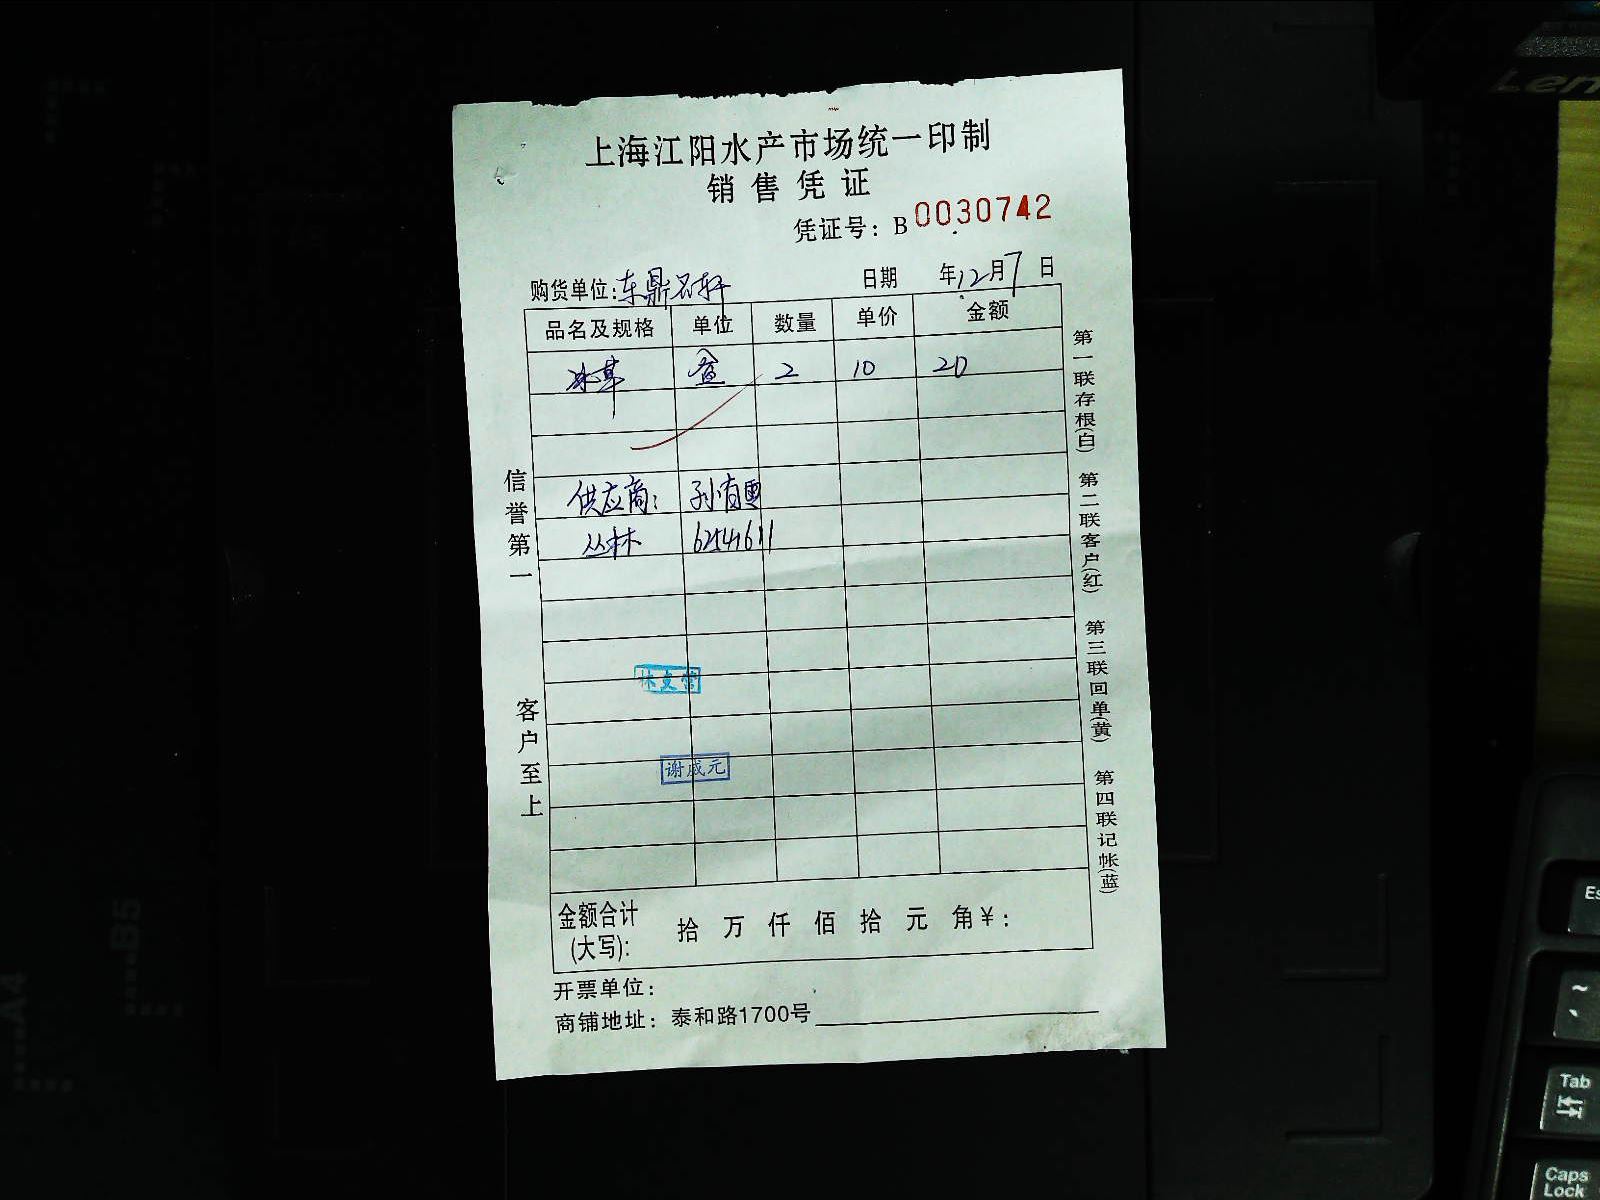 上海江阳水产市场统一印制
销售凭证
凭证号：B 0030742
购货单位:东鼎名轩 日期 年12月7日
品名及规格 单位 数量 单价 金额
冰草 盒 2 10 20
供应商： 孙有更
丛林 62541611
林支营
谢成元
金额合计(大写): 拾 万 仟 佰 拾 元 角 ￥：
开票单位：
商铺地址：泰和路1700号
信誉第一 客户至上
第一联存根(白) 第二联客户(红) 第三联回单(黄) 第四联记帐(蓝)
Len
B5
A4
Es
~
Tab
Caps
Lock